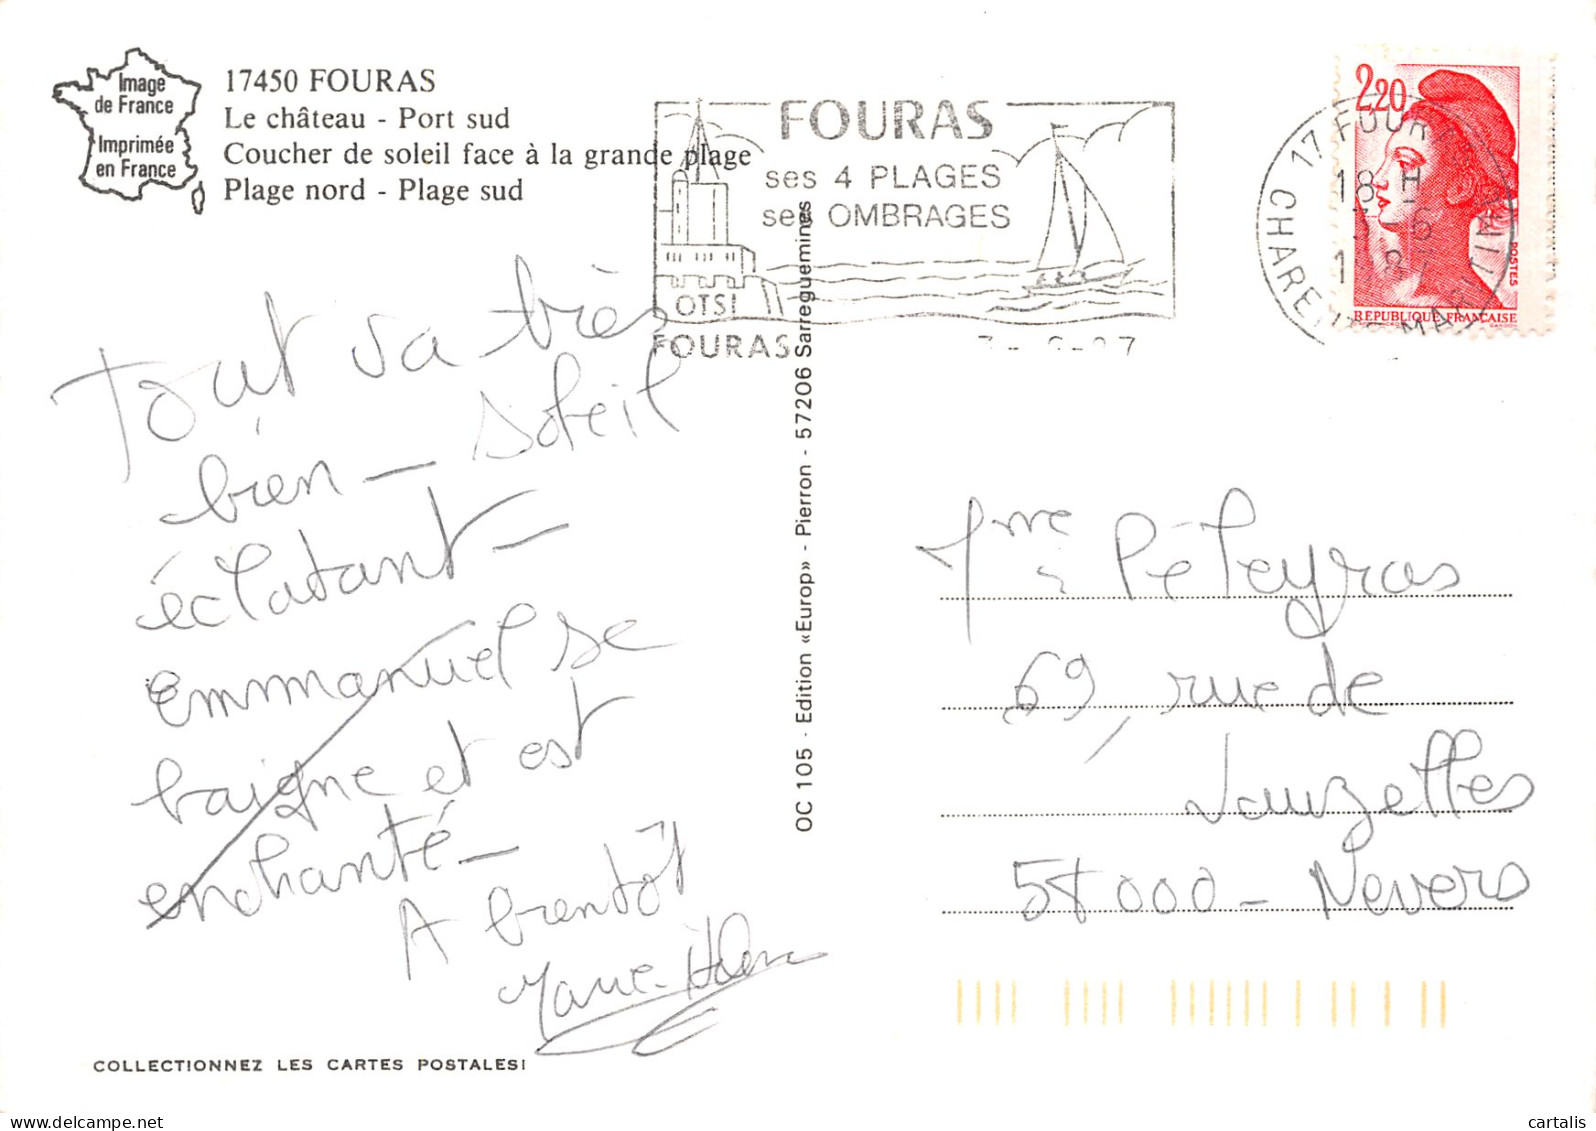 Image
de France
Imprimée
en France
17450 FOURAS
Le château - Port sud
Coucher de soleil face à la grande plage
Plage nord - Plage sud
FOURAS
ses 4 PLAGES
ses OMBRAGES
OTSI
FOURAS
17 FOURAS
CHARENTE MARITIME
18 H
3 - 6
2,20
POSTES
REPUBLIQUE FRANÇAISE
Tout va très
bien - soleil
éclatant -
Emmanuel se
baigne et est
enchanté -
A bientôt
Marie-Hélène
OC 105 - Edition «Europ» - Pierron - 57206 Sarreguemines
Mme Péleyras
69, rue de
Vauzelles
58000 - Nevers
COLLECTIONNEZ LES CARTES POSTALES!
delcampe.net
cartalis